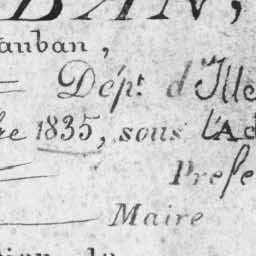 BAN,
auban,
Dép.t d'Ille
1835, sous l'Ad
Prefe
Maire